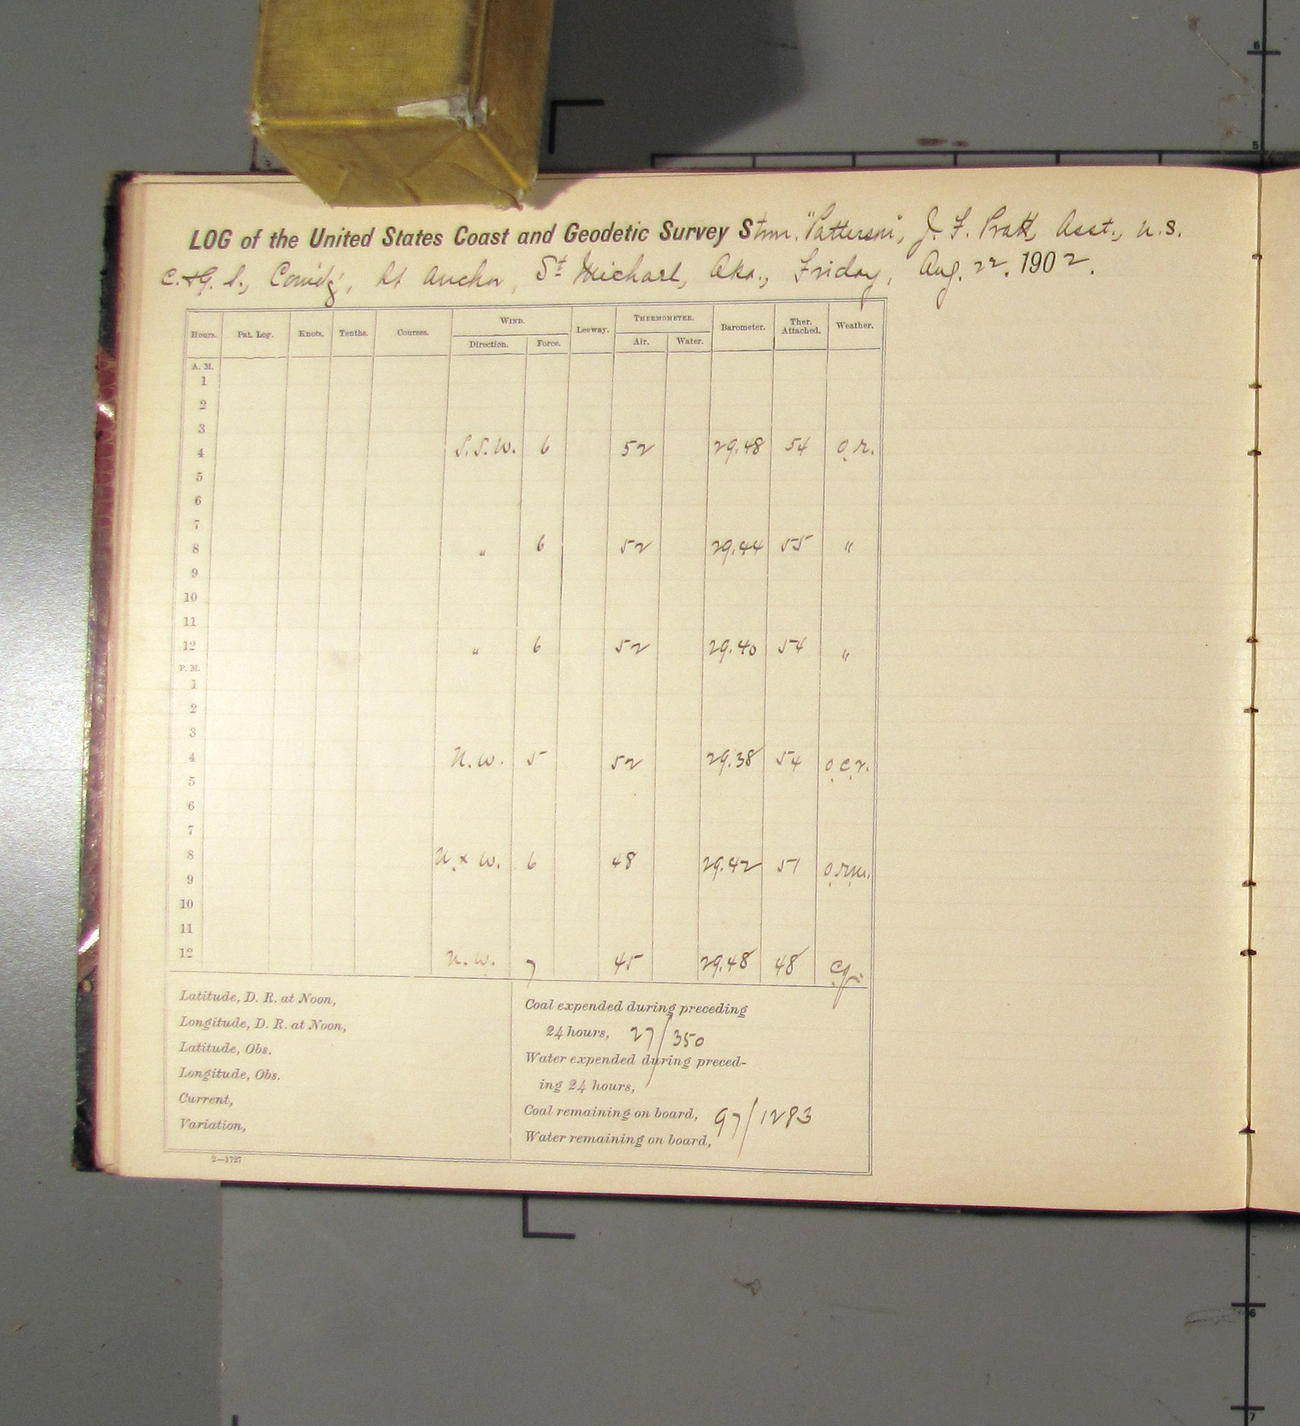 LOG of the United States Coast and Geodetic Survey Stmr. "Patterson", J. F. Pratt, Asst., U.S.
C. & G. S., Comd'g, At anchor, St Michael, Aka., Friday, Aug. 22. 1902.
Hours. Pat. Log. Knots. Tenths. Courses. WIND. Leeway. THERMOMETER. Barometer. Ther. Attached. Weather.
Direction. Force. Air. Water.
A. M.
1
2
3
4 S.S.W. 6 52 29.48 54 o.r.
5
6
7
8 " 6 52 29.44 55 "
9
10
11
12 " 6 52 29.40 54 "
P. M.
1
2
3
4 N.W. 5 52 29.38 54 o.c.r.
5
6
7
8 N. x W. 6 48 29.42 51 o.r.m.
9
10
11
12 N.W. 7 45 29.48 48 c.q.
Latitude, D. R. at Noon,
Longitude, D. R. at Noon,
Latitude, Obs.
Longitude, Obs.
Current,
Variation,
Coal expended during preceding
24 hours, 27/350
Water expended during preced-
ing 24 hours,
Coal remaining on board, 97/1283
Water remaining on board,
2—1727
6
5
6
7